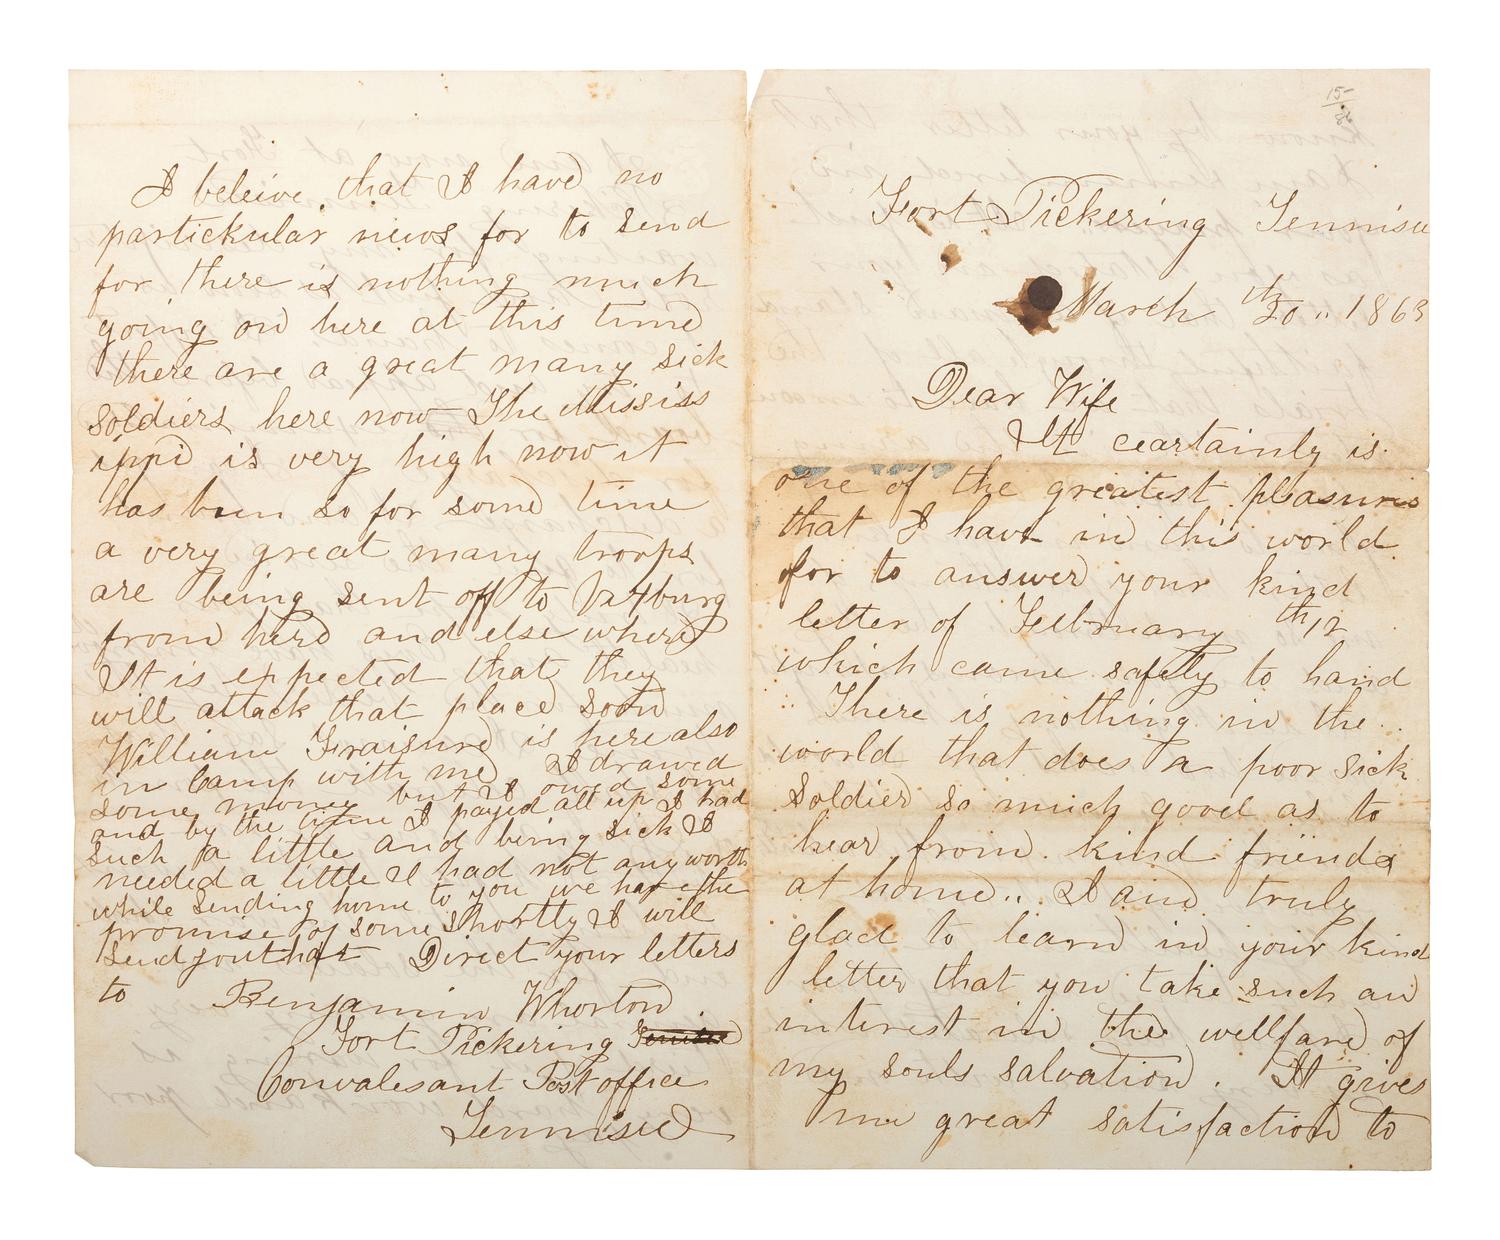 15-
86
Fort Pickering Tennisee
March th20 .. 1863
Dear Wife
It ceartainly is
one of the greatest pleasures
that I have in this world
for to answer your kind
letter of Februrary th12
which came safely to hand
There is nothing in the
world that does a poor sick
Soldier so much good as to
hear from kind friends
at home.. I am truly
glad to learn in your kind
letter that you take such an
interest in the wellfare of
my souls salvation. It gives
me great satisfaction to
I beleive that I have no
partickular news for to send
for there is nothing much
going on here at this time
there are a great many sick
soldiers here now The Mississ
ippi is very high now it
has been so for some time
a very great many troops
are being sent off to Vixburg
from here and else where
It is expected that they
will attack that place soon
William Fraisure is here also
in Camp with me I drawed
some money but I owed some
and by the time I payed all up I had
such a little and being sick I
needed a little I had not any worth
while sending home to you we have the
promise of some shortly I will
send you that Direct your letters
to Benjamin Whorton
Fort Pickering
Convalesant Post office
Tennisee